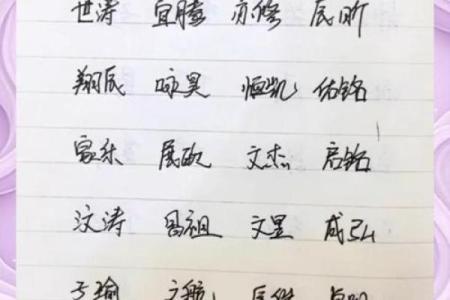 世涛 宜臻 亦修 辰昕
翔辰 咏昊 恒凯 佑铭
家乐 展政 文杰 启铭
汶涛 昌祖 文昱 成弘
子瑜